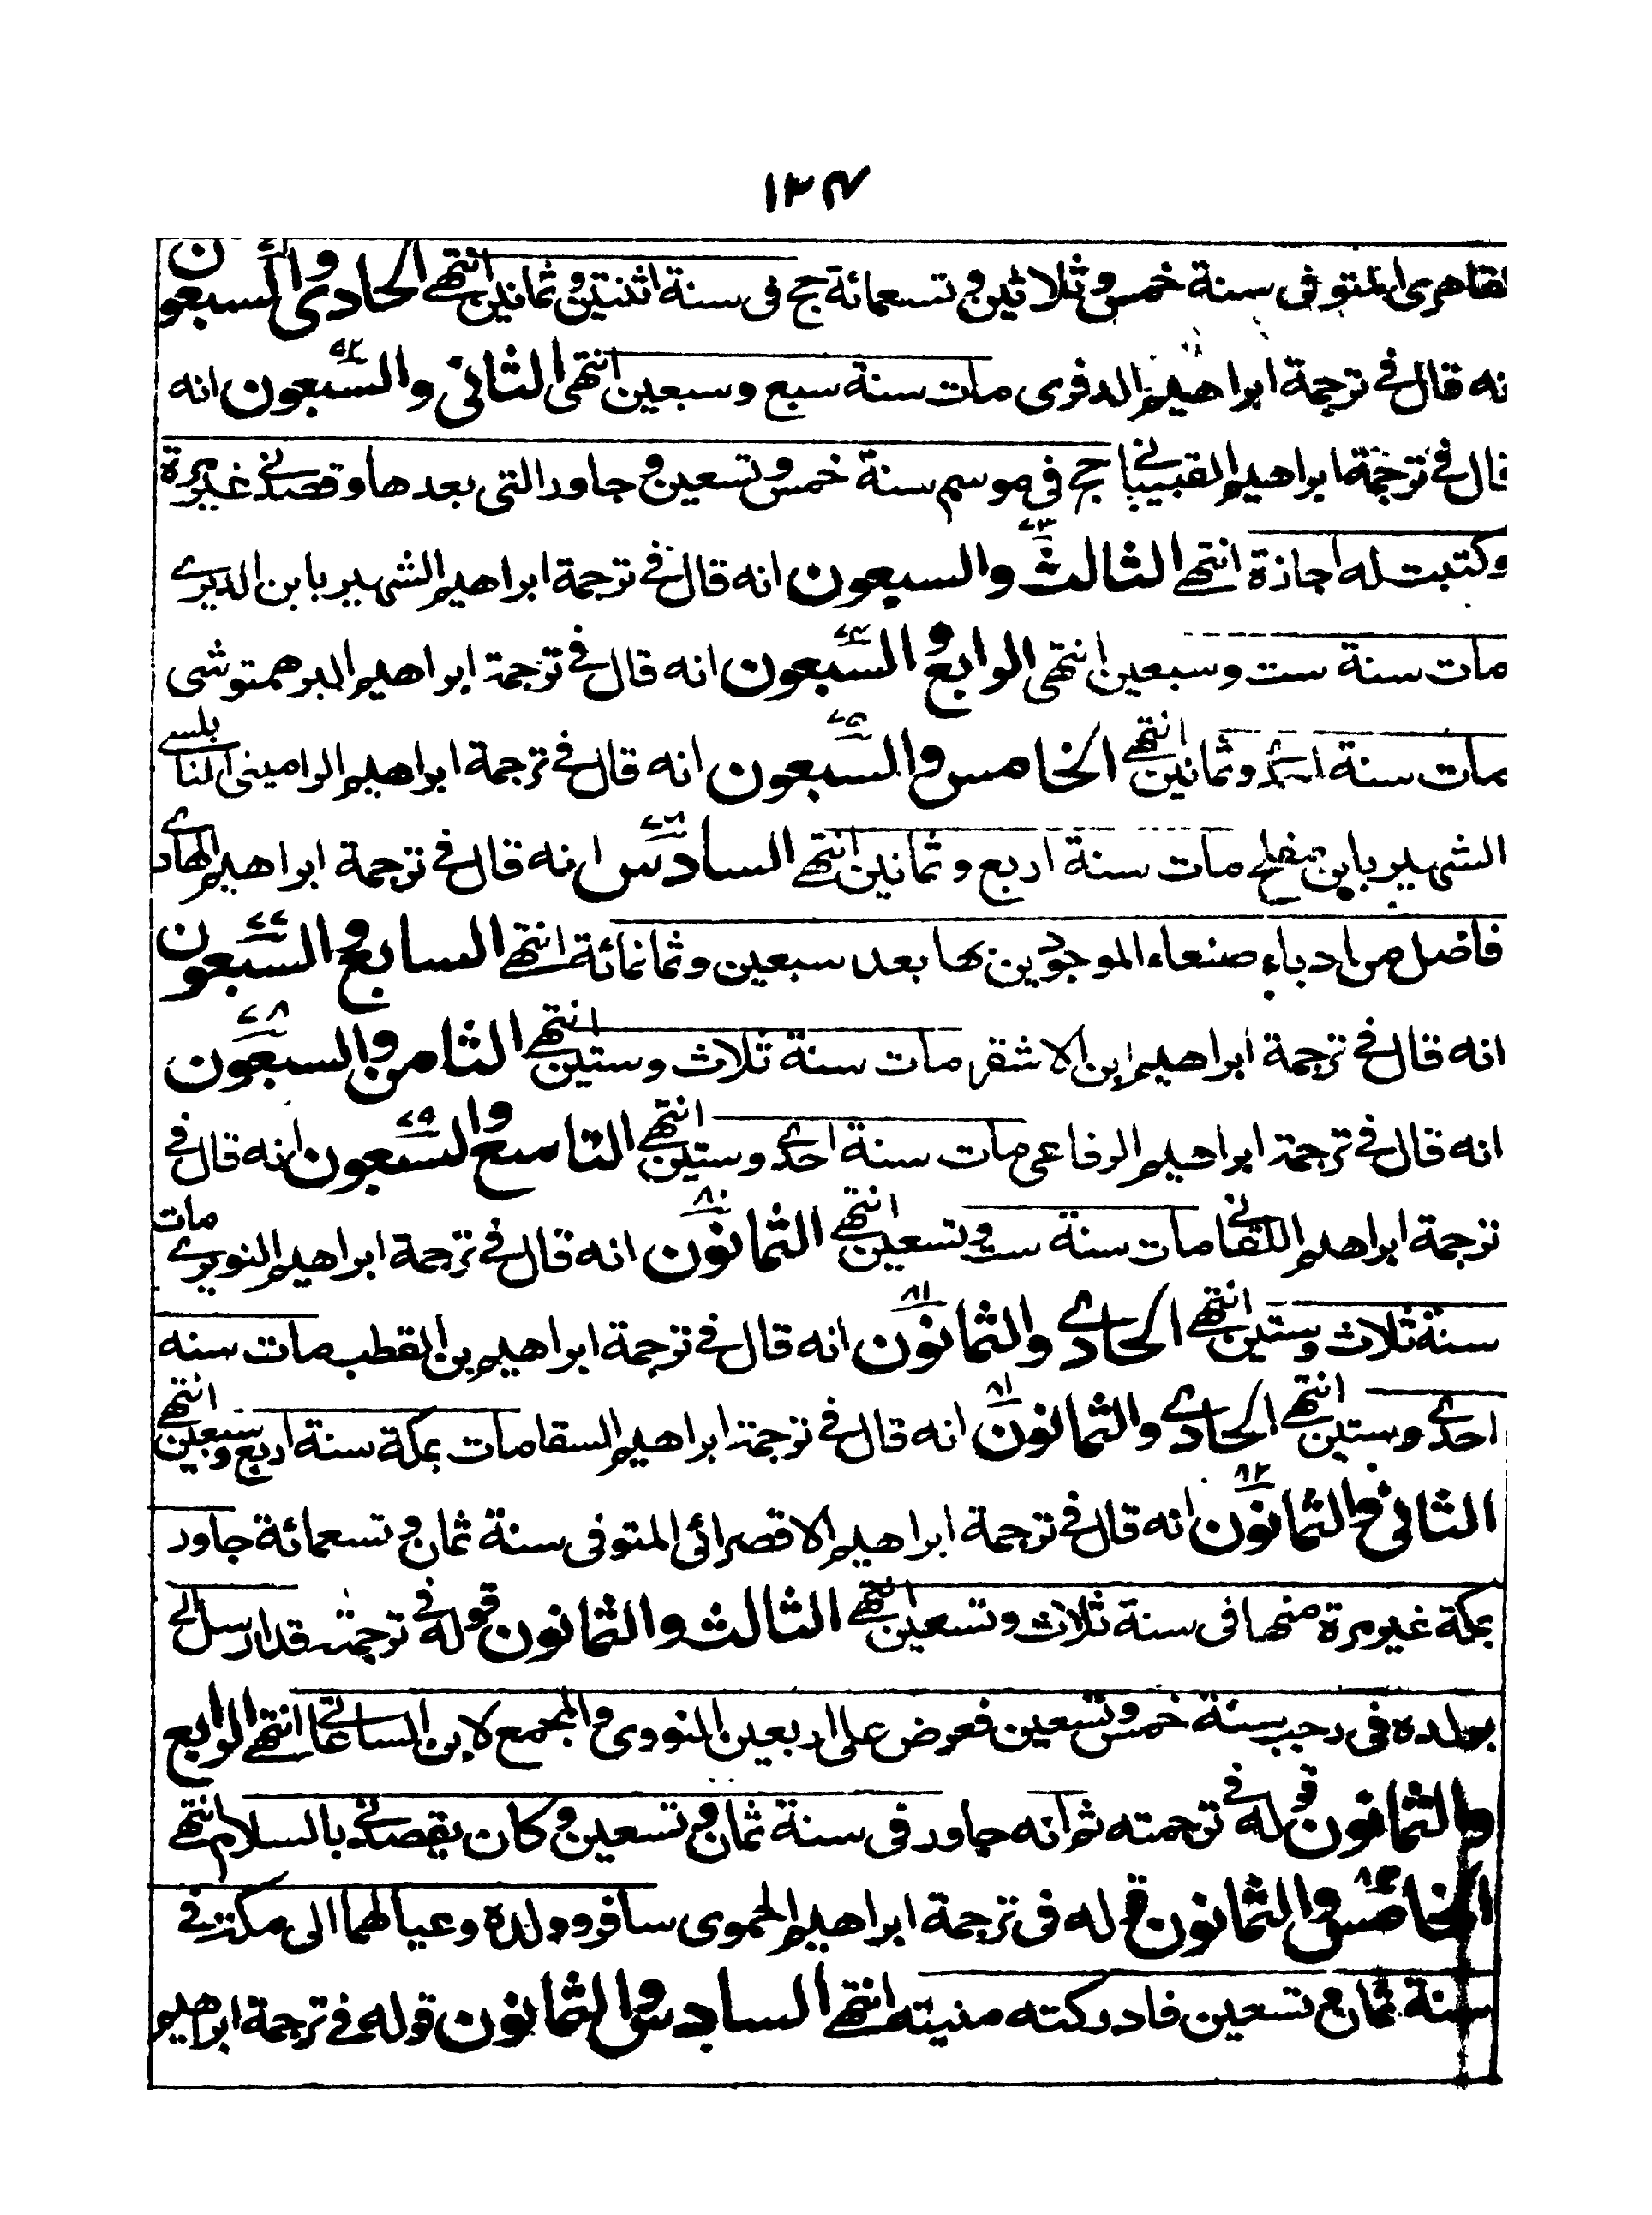 ١٣٧
لقاهرى المتوفى سنة خمس وثلاثين وتسعمائة حج فى سنة اثنتين وثمانين انتهى الحادى والسبعون
نه قال فى ترجمة ابراهيم الدفرى مات سنة سبع وسبعين انتهى الثانى والسبعون انه
قال فى ترجمة ابراهيم القبيباتى حج فى موسم سنة خمس وتسعين وجاور التى بعدها وقصدنى غير مرة
وكتبت له اجازة انتهى الثالث والسبعون انه قال فى ترجمة ابراهيم الشهير بابن الديرى
مات سنة ست وسبعين انتهى الرابع والسبعون انه قال فى ترجمة ابراهيم البرهمتوشى
مات سنة احدى وثمانين انتهى الخامس والسبعون انه قال فى ترجمة ابراهيم الرامينى الحنبلى
الشهير بابن مفلح مات سنة اربع وثمانين انتهى السادس انه قال فى ترجمة ابراهيم الهادى
فاضل من ادباء صنعاء الموجودين بها بعد سبعين وثمانمائة انتهى السابع والسبعون
انه قال فى ترجمة ابراهيم ابن الاشقر مات سنة ثلاث وستين انتهى الثامن والسبعون
انه قال فى ترجمة ابراهيم الرفاعى مات سنة احدى وستين انتهى التاسع والسبعون انه قال فى
ترجمة ابراهيم اللقانى مات سنة ست وتسعين انتهى الثمانون انه قال فى ترجمة ابراهيم النويرى مات
سنة ثلاث وستين انتهى الحادى والثمانون انه قال فى ترجمة ابراهيم بن القطب مات سنه
احدى وستين انتهى الحادى والثمانون انه قال فى ترجمة ابراهيم السقا مات بمكة سنة اربع وسبعين انتهى
الثانى والثمانون انه قال فى ترجمة ابراهيم الاقصرائى المتوفى سنة ثمان وتسعمائة جاور
بمكة غير مرة منها فى سنة ثلاث وتسعين انتهى الثالث والثمانون قوله فى ترجمته قد ارسل الى
بولده فى رجب سنة خمس وتسعين فعرض على اربعين النووى والمجمع لابن الساعاتى انتهى الرابع
والثمانون قوله فى ترجمته ثم انه جاور فى سنة ثمان وتسعين وكان يقصدنى بالسلام انتهى
الخامس والثمانون قوله فى ترجمة ابراهيم الحموى سافر وولده وعيالهما الى مكة فى
سنة ثمان وتسعين فادركته منيته انتهى السادس والثمانون قوله فى ترجمة ابراهيم